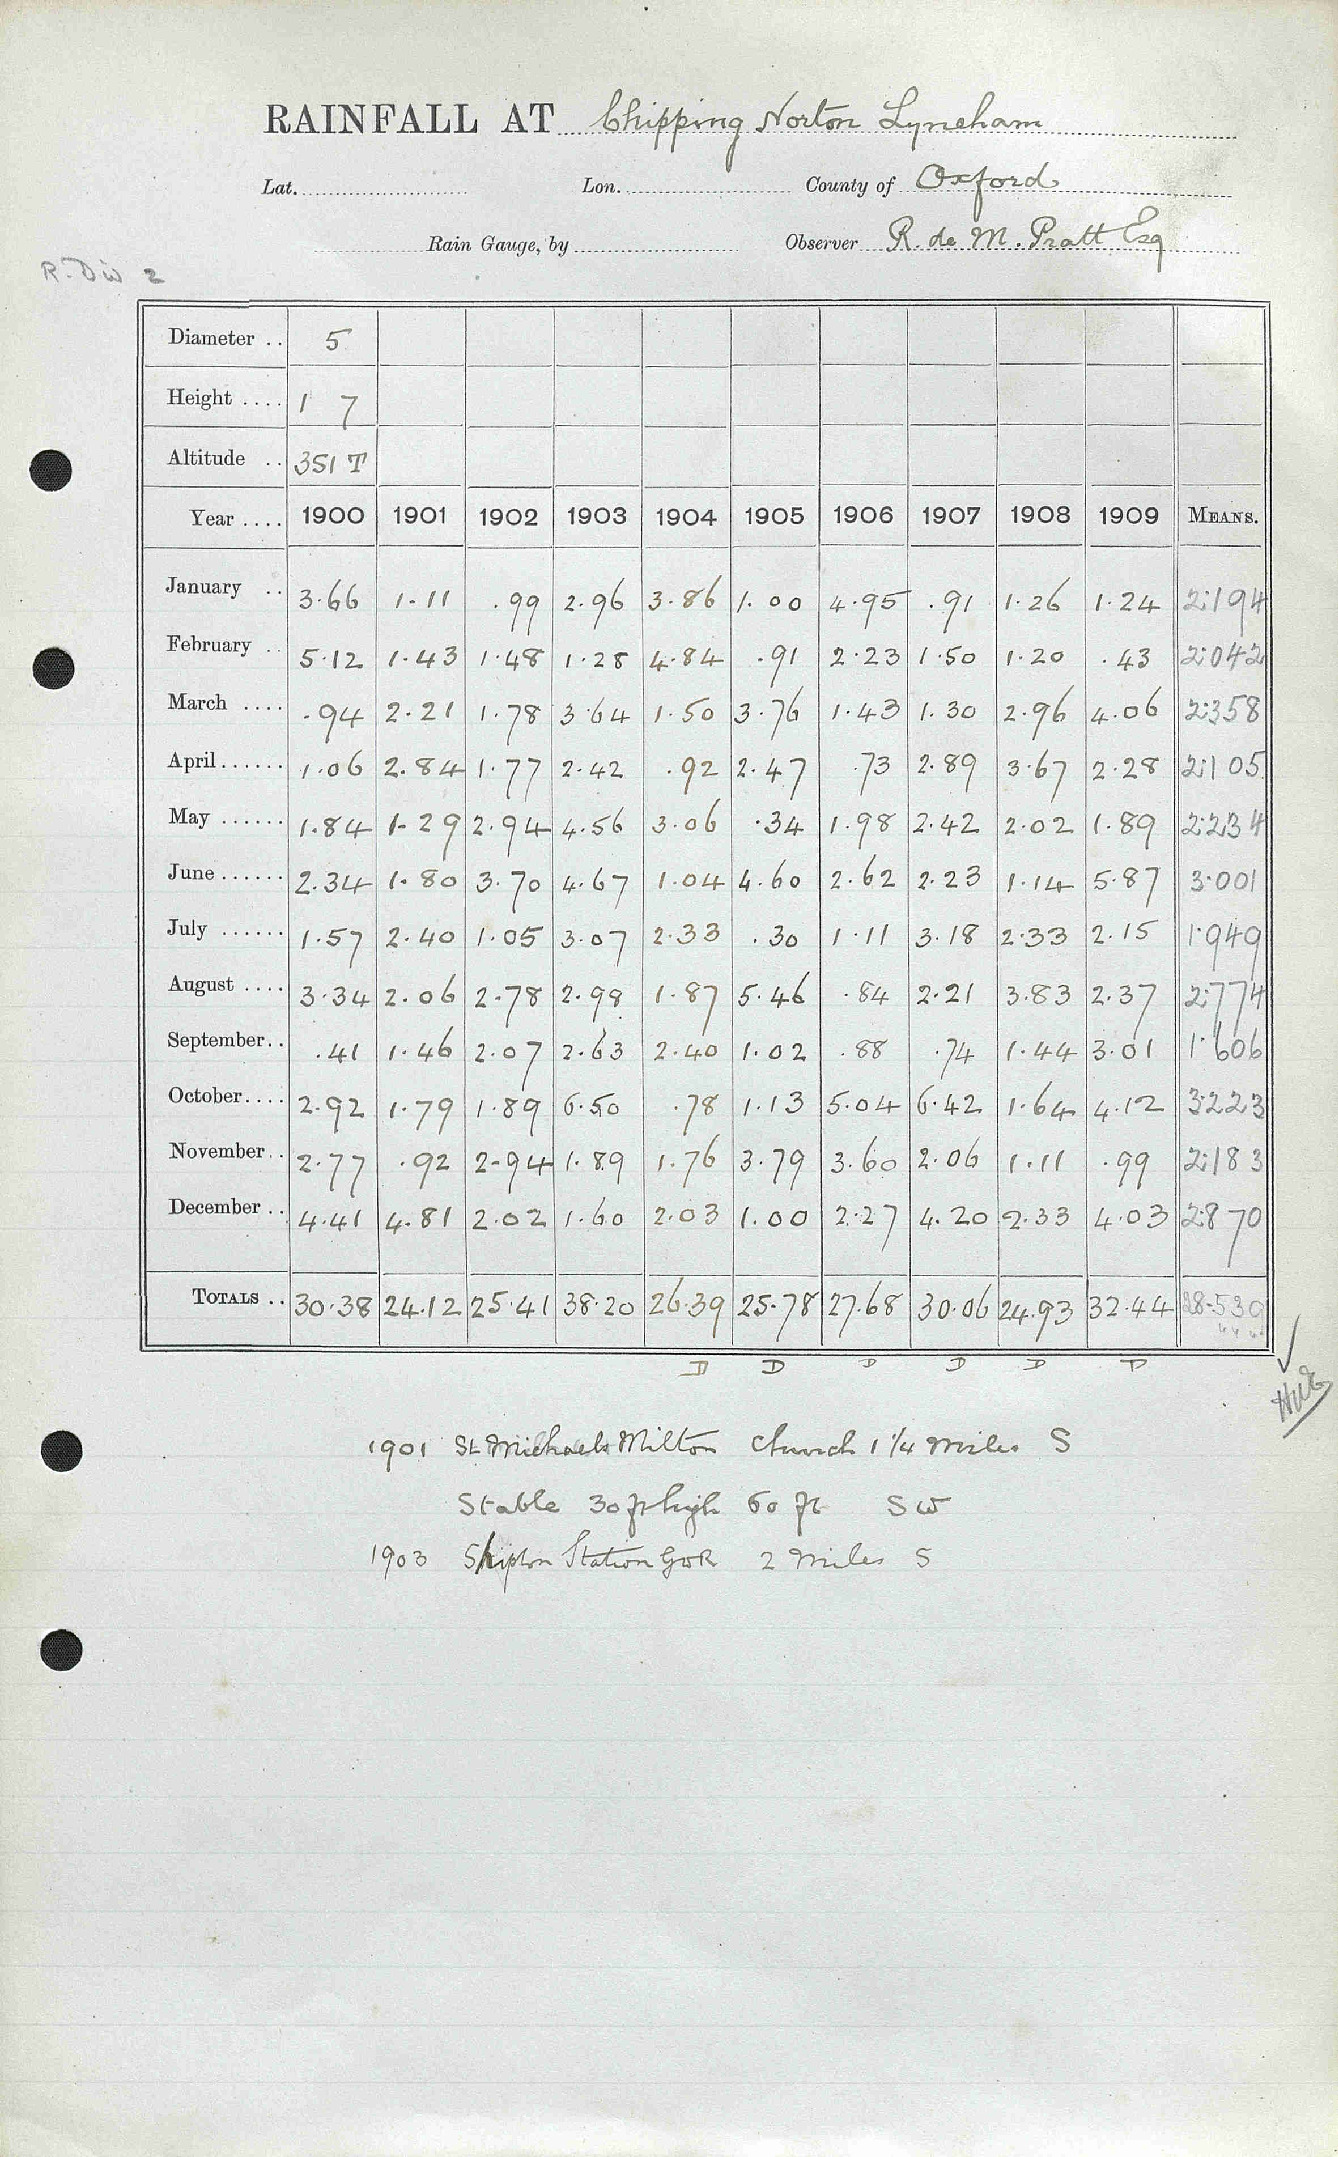 RAINFALL AT Chipping Norton Lyneham
Lat. Lon. County of Oxford
Rain Gauge, by Observer R. de M. Pratt Esq
R. Div 2
Diameter .. 5
Height .... 1 7
Altitude .. 351 T
Year .... 1900 1901 1902 1903 1904 1905 1906 1907 1908 1909 MEANS.
January .. 3.66 1.11 .99 2.96 3.86 1.00 4.95 .91 1.26 1.24 2.194
February .. 5.12 1.43 1.48 1.28 4.84 .91 2.23 1.50 1.20 .43 2.042
March .... .94 2.21 1.78 3.64 1.50 3.76 1.43 1.30 2.96 4.06 2.358
April...... 1.06 2.84 1.77 2.42 .92 2.47 .73 2.89 3.67 2.28 2.105
May ...... 1.84 1.29 2.94 4.56 3.06 .34 1.98 2.42 2.02 1.89 2.234
June...... 2.34 1.80 3.70 4.67 1.04 4.60 2.62 2.23 1.14 5.87 3.001
July ...... 1.57 2.40 1.05 3.07 2.33 .30 1.11 3.18 2.33 2.15 1.949
August .... 3.34 2.06 2.78 2.98 1.87 5.46 .84 2.21 3.83 2.37 2.774
September.. .41 1.46 2.07 2.63 2.40 1.02 .88 .74 1.44 3.01 1.606
October.... 2.92 1.79 1.89 6.50 .78 1.13 5.04 6.42 1.64 4.12 3.223
November.. 2.77 .92 2.94 1.89 1.76 3.79 3.60 2.06 1.11 .99 2.183
December .. 4.41 4.81 2.02 1.60 2.03 1.00 2.27 4.20 2.33 4.03 2.870
TOTALS .. 30.38 24.12 25.41 38.20 26.39 25.78 27.68 30.06 24.93 32.44 28.539
D D D D D D
1901 St Michaels Milton Church 1 1/4 miles S
Stable 30 ft high 60 ft SW
1903 Shipton Station GWR 2 miles S